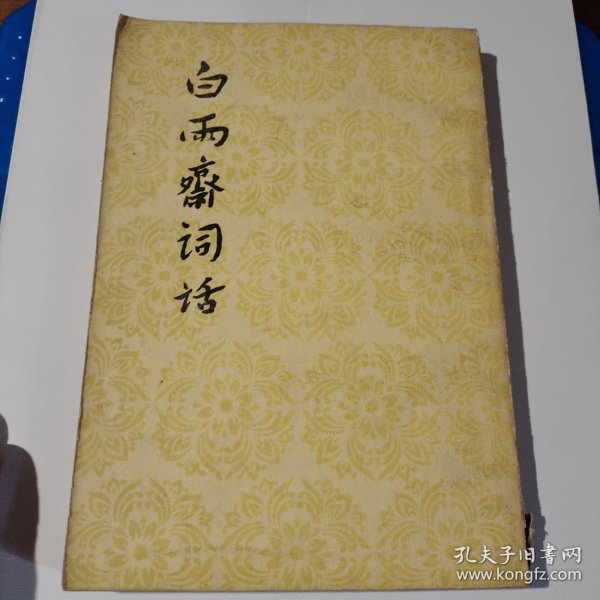 白雨齋词话
孔夫子旧書网
www.kongfz.com